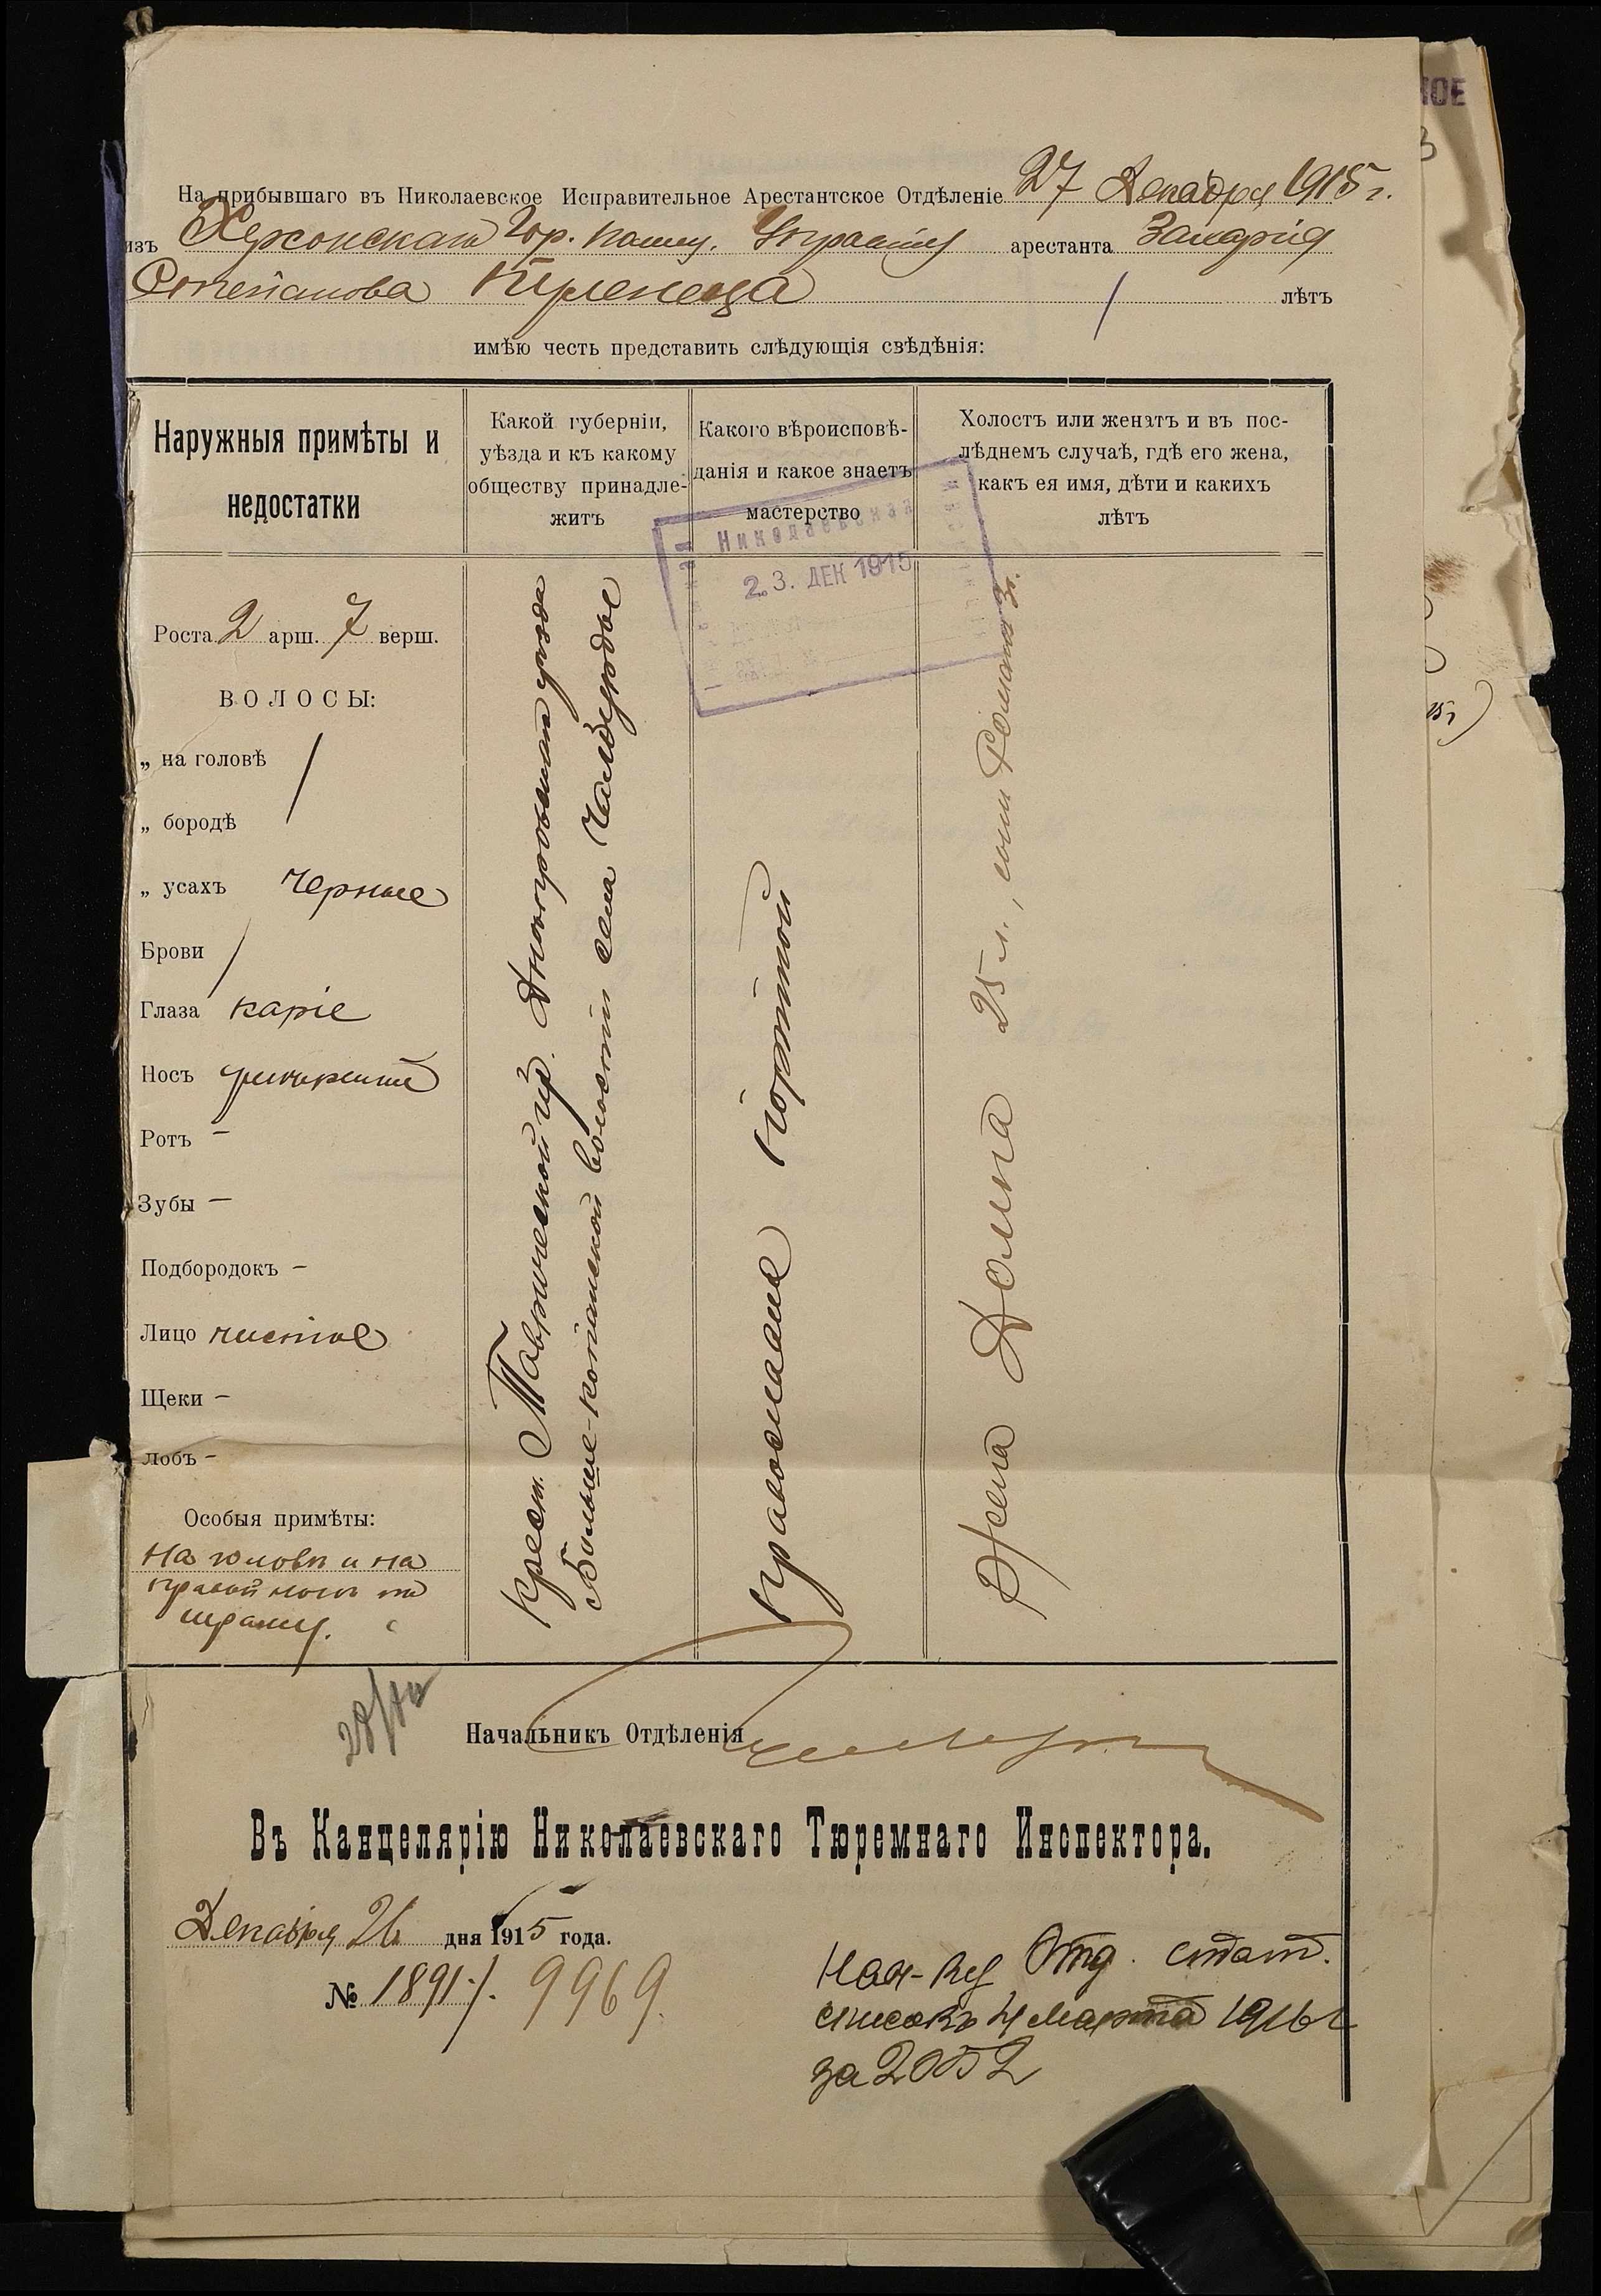 На прибывшаго въ Николаевское Исправительное Арестантское Отдѣленіе 27 Декабря 1915 г.
изъ Херсонскаго Гор. Полиц. Управленія арестанта Захарія
Степанова лѣтъ
имѣю честь представить слѣдующія свѣдѣнія:
Наружныя примѣты и
недостатки
Какой губерніи,
уѣзда и къ какому
обществу принадле-
житъ
Какого вѣроисповѣ-
данія и какое знаетъ
мастерство
Холостъ или женатъ и въ пос-
лѣднемъ случаѣ, гдѣ его жена,
какъ ея имя, дѣти и какихъ
лѣтъ
Николаевская
23. ДЕК 1915
Роста 2 арш. 7 верш.
ВОЛОСЫ:
„ на головѣ
„ бородѣ
„ усахъ черные
Брови
Глаза каріе
Носъ умѣренный
Ротъ –
Зубы –
Подбородокъ –
Лицо чистое
Щеки –
Лобъ –
Особыя примѣты:
на головѣ и на
правой ногѣ по
шраму.
Крест. Таврической губ. Днѣпровскаго уѣзда
Больше-Копанской волости села Чалбурды
Православное Портной
Жена Домна 25 л., сын Роман 3 г.
Начальникъ Отдѣленія
Въ Канцелярію Николаевскаго Тюремнаго Инспектора.
Декабря 26 дня 1915 года.
№ 18917. 9969.
Нач-ку Отд. стат.
списокъ 4 Марта 1916 г
за 2052
ОЕ